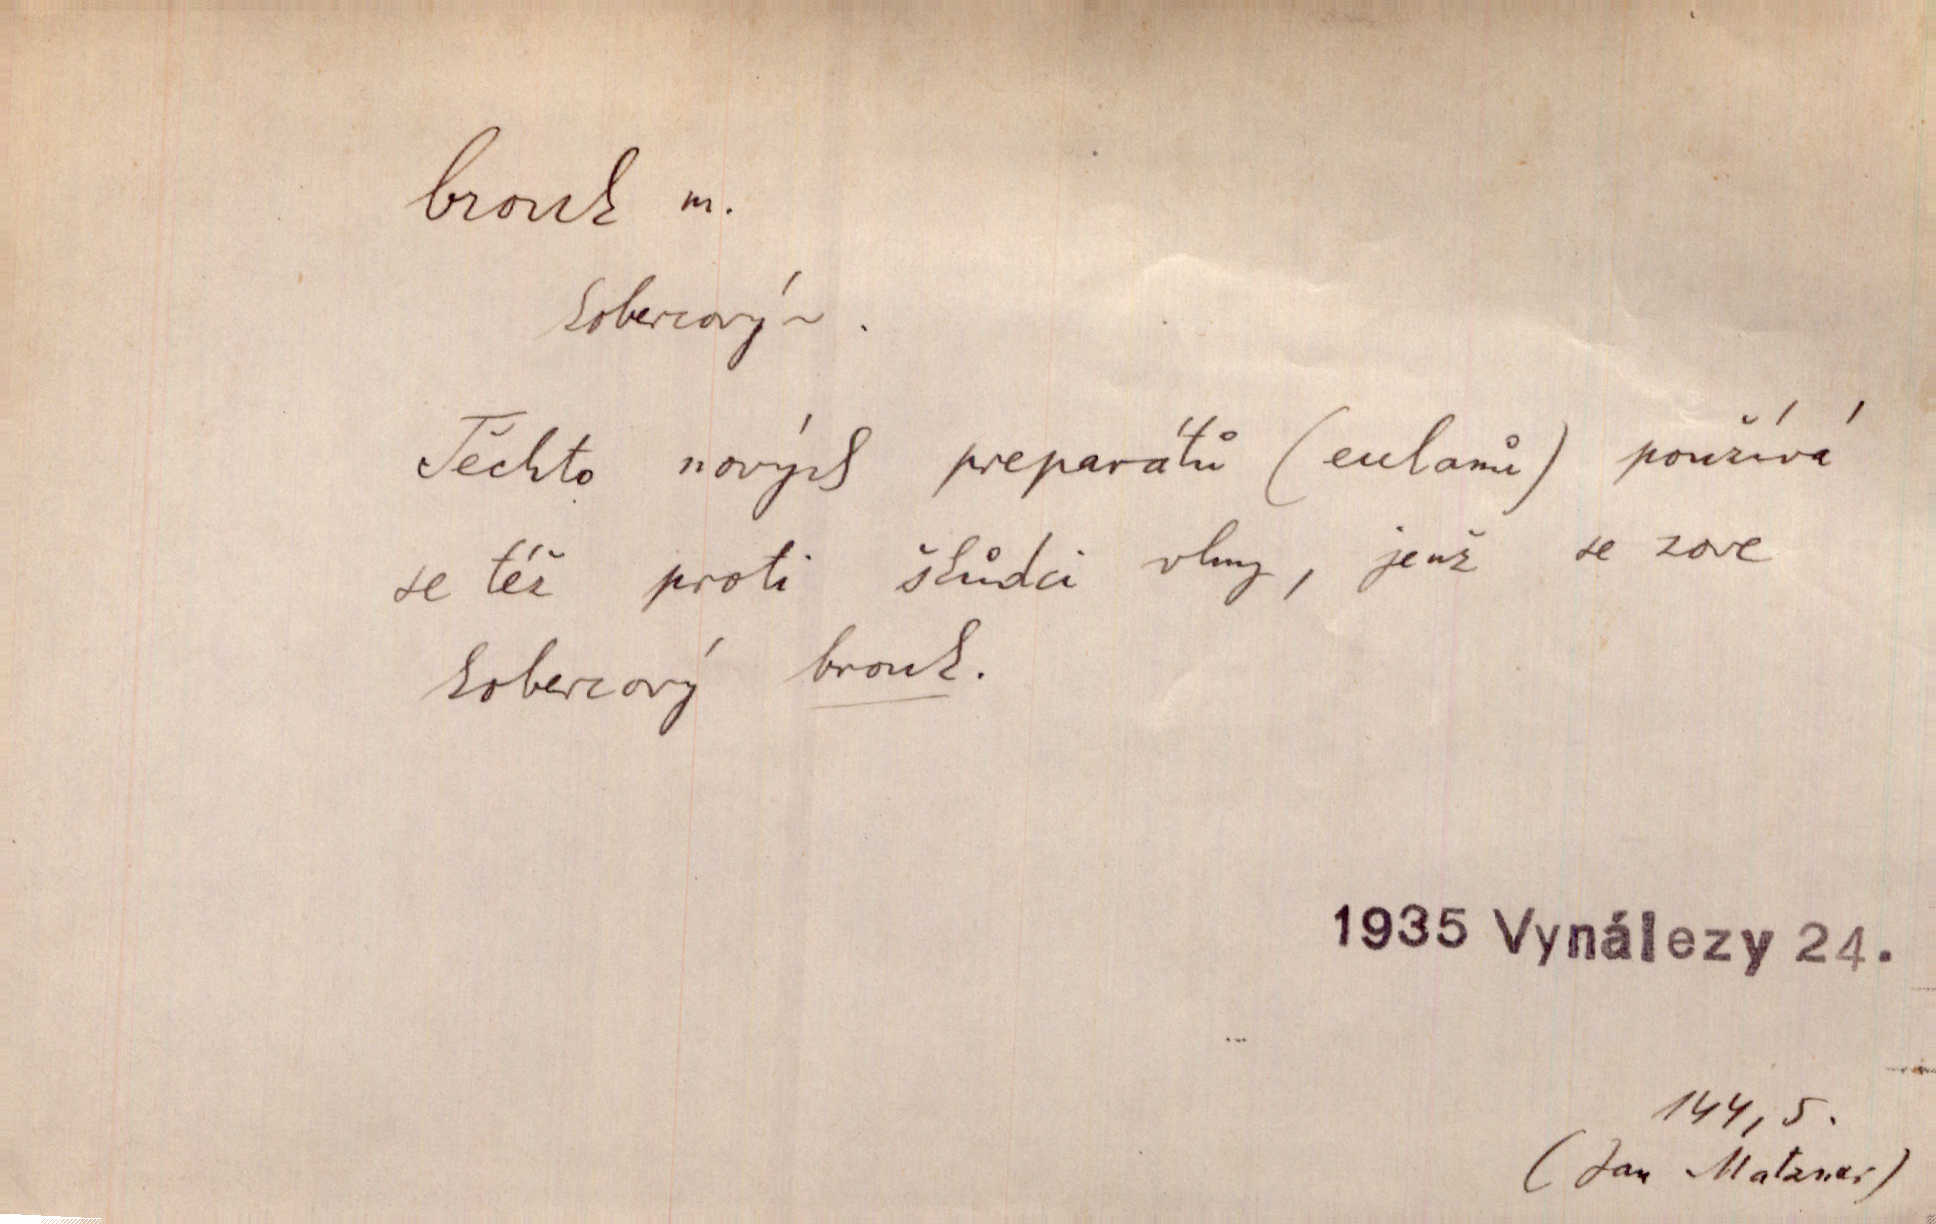 brouk m.
kobercový ~ .
Těchto nových preparátů (eulanů) používá
se též proti škůdci vlny, jenž se zove
kobercový brouk.
1935 Vynálezy 24.
144, 5.
(Jan Matzner)